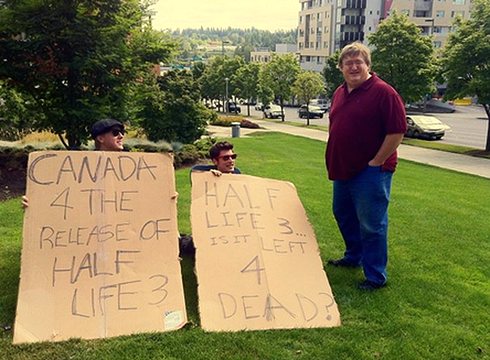 CANADA
4 THE
RELEASE OF
HALF
LIFE 3
HALF
LIFE 3...
IS IT LEFT
4
DEAD?